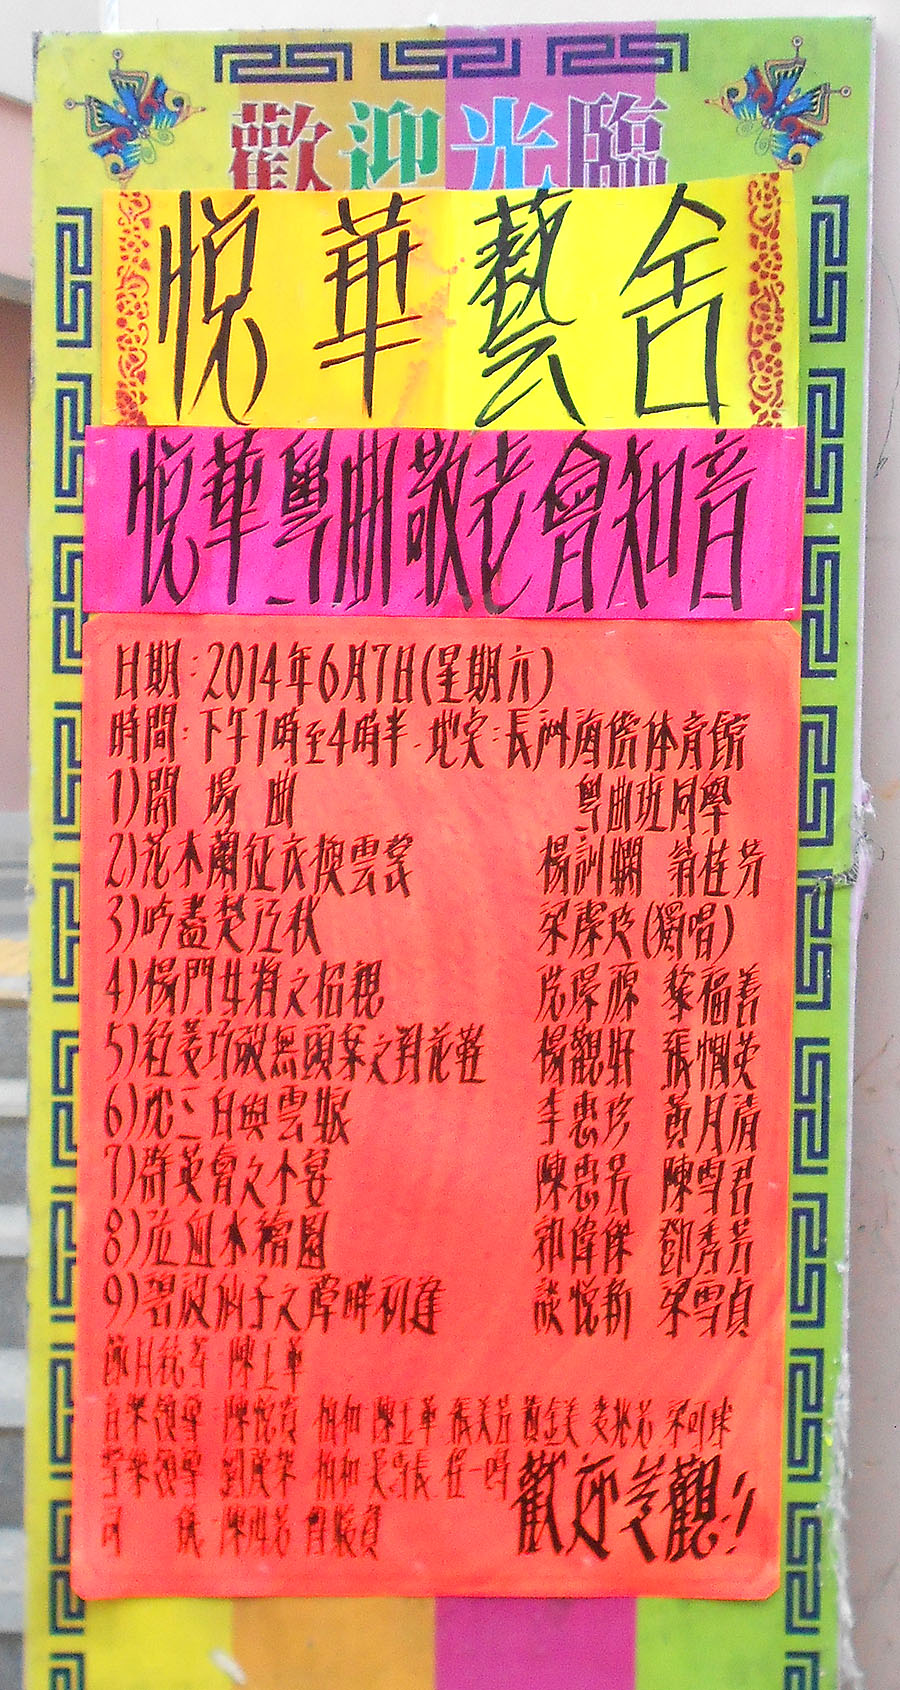 歡迎光臨
悅華藝舍
悅華粵曲敬老會知音
日期:2014年6月7日(星期六)
時間:下午1時至4時半 地点:長洲海傍体育館
1)開場曲 粵曲班同學
2)花木蘭征衣換雲裳 楊訓嫻 翁桂芬
3)吟盡楚江秋 梁潔玲(獨唱)
4)楊門女將之招親 陽源 黎福善
5)紅菱巧破無頭案之對花鞋 楊觀好 張惠英
6)沈三白與雲娘 李惠珍 黃月清
7)群英會之小宴 陳惠芳 陳雪君
8)碧血水繪園 郭偉傑 鄧秀芳
9)碧波仙子之潭畔初逢 談悅新 梁雪貞
節目統籌 陳玉華
音樂領導 陳悅 拍和 陳玉華 張美芳 黃金美 麥兆 梁可球
擊樂領導 劉 拍和 吳 長 程一鳴
司儀 陳
歡迎參觀!